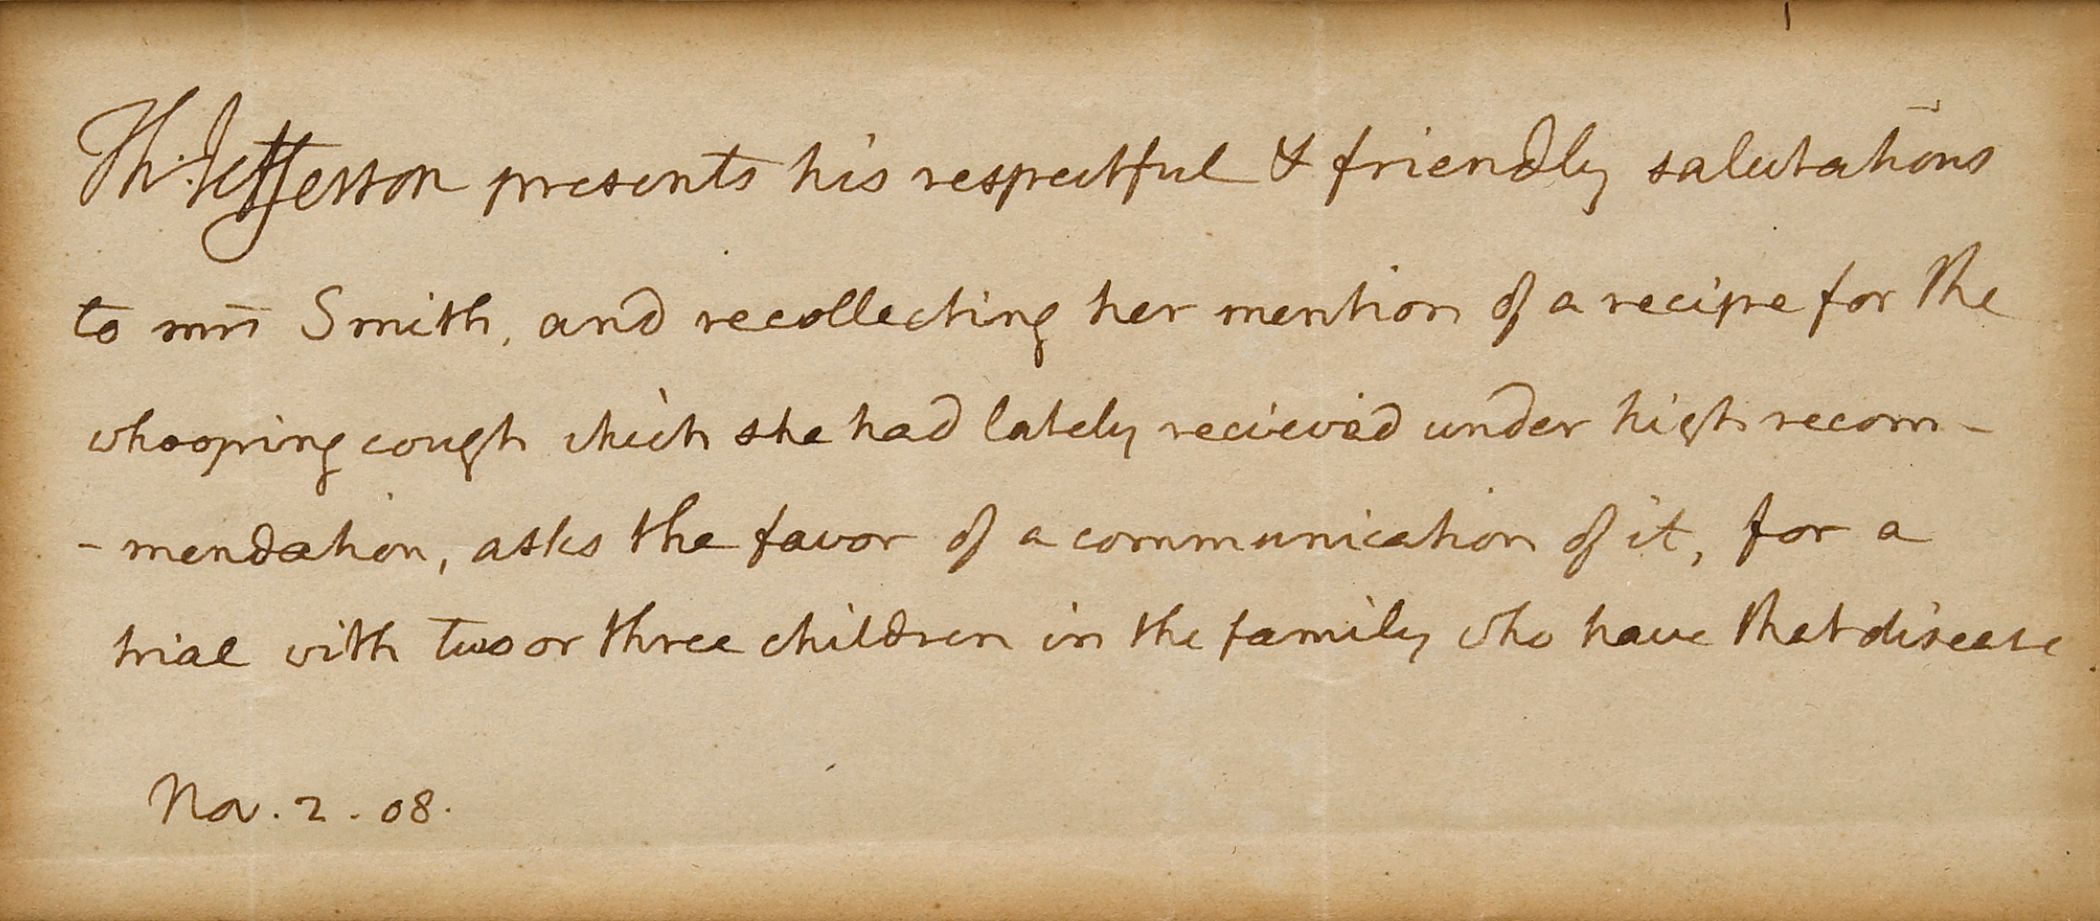 Th: Jefferson presents his respectful & friendly salutations
to mrs Smith, and recollecting her mention of a recipe for the
whooping cough which she had lately recieved under high recom-
-mendation, asks the favor of a communication of it, for a
trial with two or three children in the family who have that disease.
Nov. 2. 08.